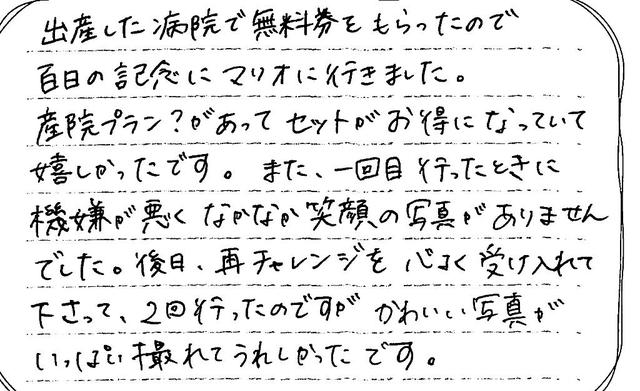 出産した病院で無料券をもらったので
百日の記念にマリオに行きました。
産院プラン?があってセットがお得になっていて
嬉しかったです。また、一回目行ったときに
機嫌が悪くなかなか笑顔の写真がありません
でした。後日、再チャレンジを心よく受け入れて
下さって、2回行ったのですがかわいい写真が
いっぱい撮れてうれしかったです。